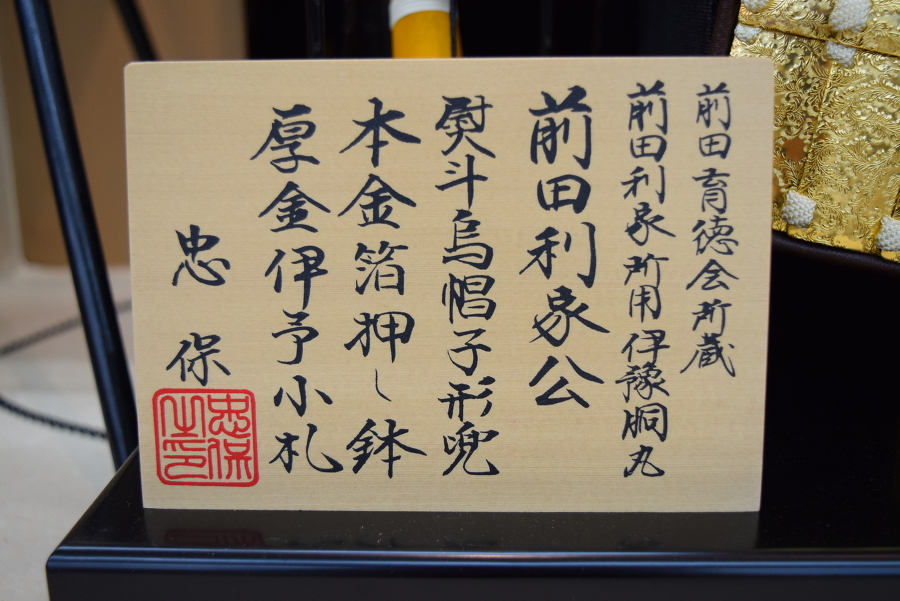 前田育徳会所蔵
前田利家所用伊豫胴丸
前田利家公
熨斗烏帽子形兜
本金箔押し鉢
厚金伊予小札
忠保
忠保之印